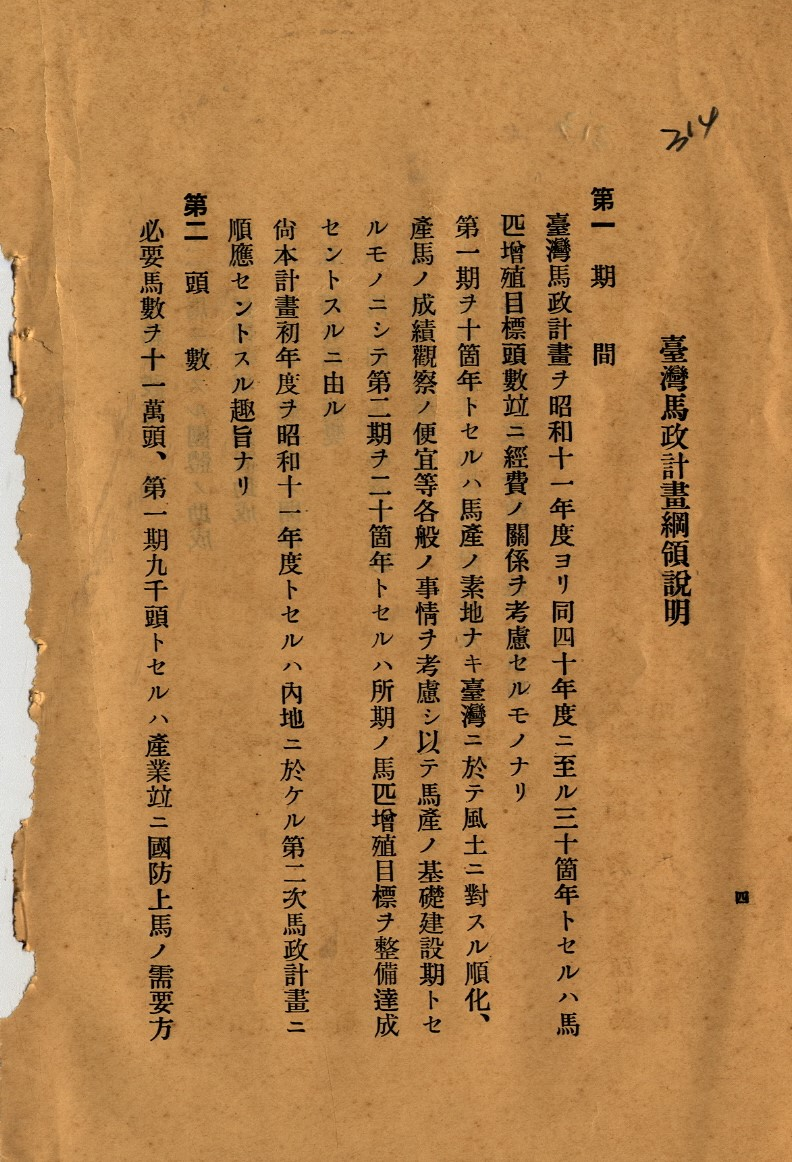 314
臺灣馬政計畫綱領說明
第一 期間
臺灣馬政計畫ヲ昭和十一年度ヨリ同四十年度ニ至ル三十箇年トセルハ馬
匹增殖目標頭數竝ニ經費ノ關係ヲ考慮セルモノナリ
第一期ヲ十箇年トセルハ馬產ノ素地ナキ臺灣ニ於テ風土ニ對スル順化、
產馬ノ成績觀察ノ便宜等各般ノ事情ヲ考慮シ以テ馬產ノ基礎建設期トセ
ルモノニシテ第二期ヲ二十箇年トセルハ所期ノ馬匹增殖目標ヲ整備達成
セントスルニ由ル
尙本計畫初年度ヲ昭和十一年度トセルハ內地ニ於ケル第二次馬政計畫ニ
順應セントスル趣旨ナリ
第二 頭數
必要馬數ヲ十一萬頭、第一期九千頭トセルハ產業竝ニ國防上馬ノ需要方
四